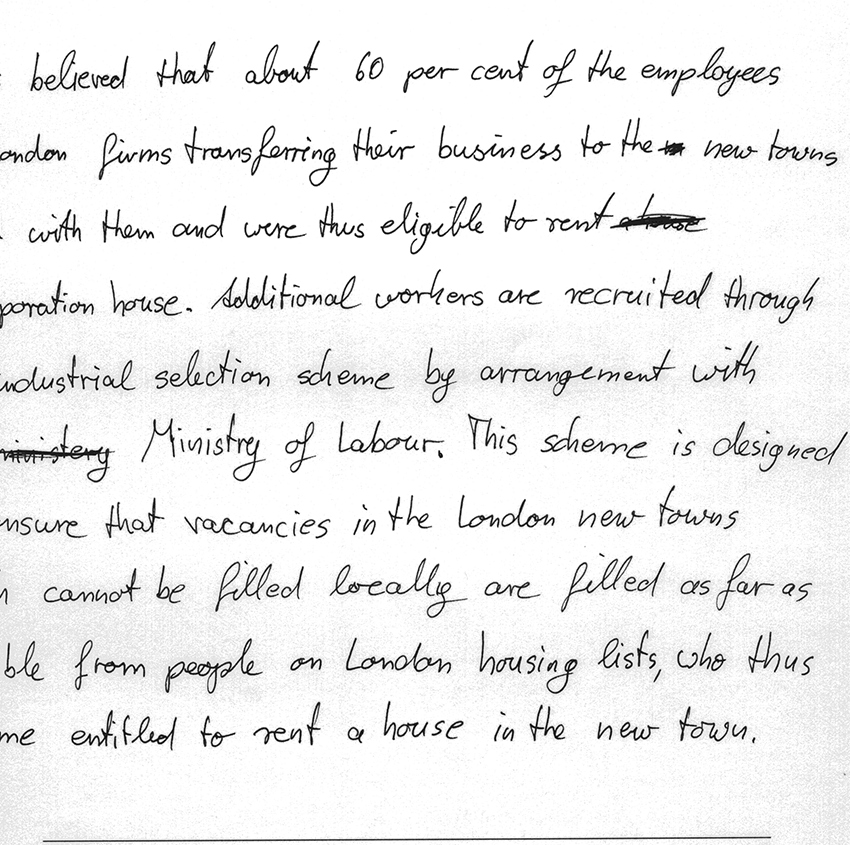 believed that about 60 per cent of the employees
ondon firms transferring their business to the new towns
with them and were thus eligible to rent
poration house. Additional workers are recruited through
ndustrial selection scheme by arrangement with
ministery Ministry of Labour. This scheme is designed
nsure that vacancies in the London new towns
cannot be filled locally are filled as far as
ble from people on London housing lists, who thus
me entitled to rent a house in the new town.